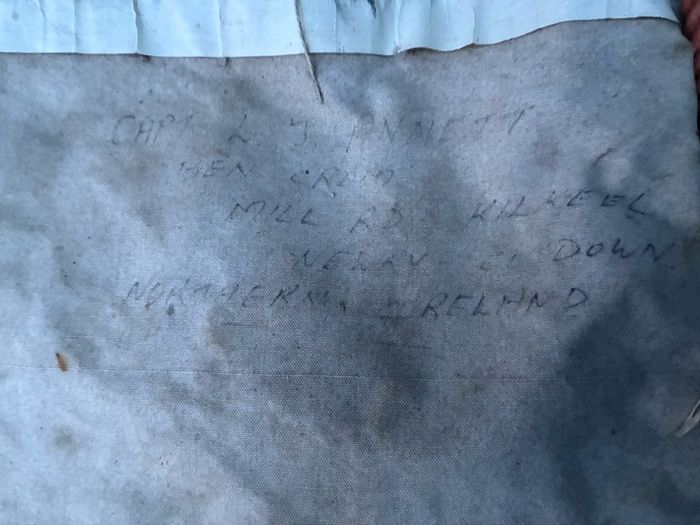 CAPT L J ANNETT
BEN CROM
MILL RD KILKEEL
NEWRY CO DOWN
NORTHERN IRELAND